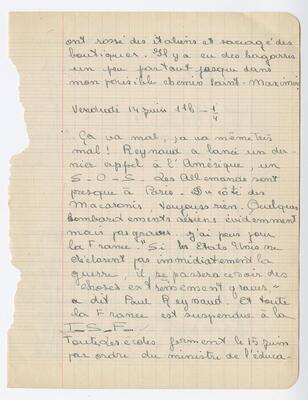 ont rossé des italiens et saccagé des
boutiques. Il y a eu des bagarres
un peu partout jusque dans
mon paisible chemin Saint-Maximin
Vendredi 14 juin 11h - 1/4
Ça va mal, ça va même très
mal! Reynaud a lancé un der-
nier appel à l'Amérique, un
S-O-S. Les Allemands sont
presque à Paris. Du côté des
Macaronis, toujours rien. Quelques
bombardements aériens évidemment
mais pas graves. "J'ai peur pour
la France" Si les Etats Unis ne
déclarent pas immédiatement la
guerre, il se passera ce soir des
choses extrêmement graves, "
a dit Paul Reynaud. Et toute
la France est suspendue à la
T-S-F-
Toutes les écoles ferment le 15 juin
par ordre du ministre de l'éduca-